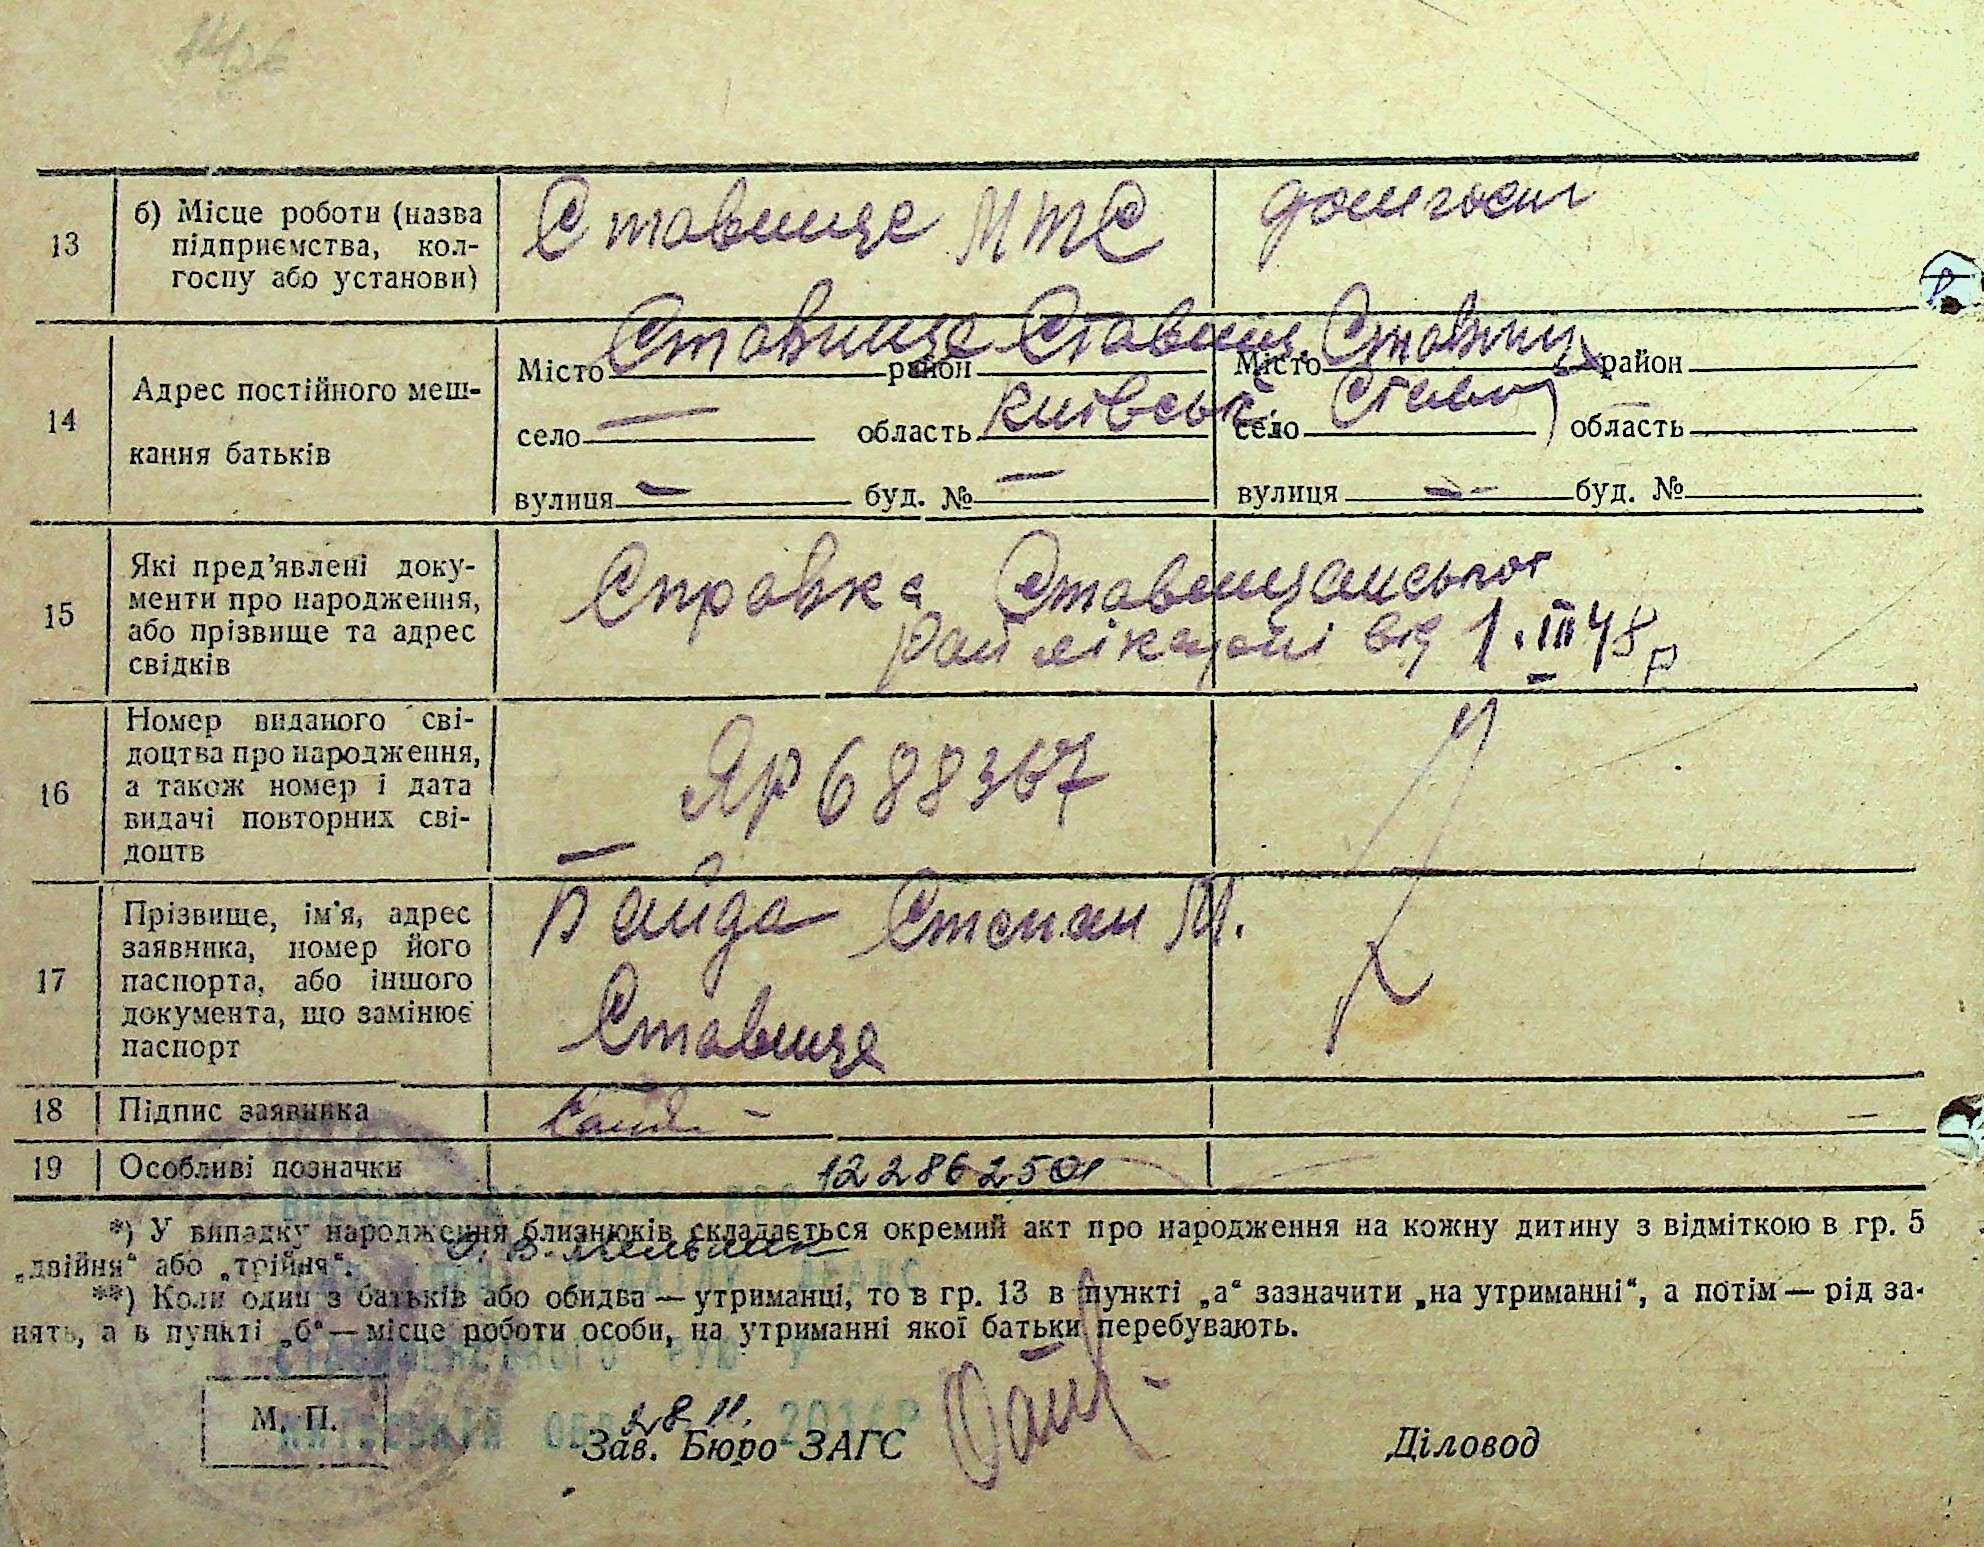 13
б) Місце роботи (назва
підприємства, кол-
госпу або установи)
Ставище МТС
домгосп
14
Адрес постійного меш-
кання батьків
Місто Ставище район Ставищ. Місто Ставищ район
село — область Київськ. село Ставищ область
вулиця — буд. № — вулиця — буд. №
15
Які пред’явлені доку-
менти про народження,
або прізвище та адрес
свідків
Справка Ставищанської
райлікарні від 1.III 48 р
16
Номер виданого сві-
доцтва про народження,
а також номер і дата
видачі повторних сві-
доцтв
ЯР 688367
17
Прізвище, ім’я, адрес
заявника, номер його
паспорта, або іншого
документа, що замінює
паспорт
Байда Степан М.
Ставище
18 Підпис заявника
19 Особливі позначки 122862501
*) У випадку народження близнюків складається окремий акт про народження на кожну дитину з відміткою в гр. 5
„двійня“ або „трійня“.
**) Коли один з батьків або обидва — утриманці, то в гр. 13 в пункті „а“ зазначити „на утриманні“, а потім — рід за-
нять, а в пункті „б“ — місце роботи особи, на утриманні якої батьки перебувають.
М. П.
28.11.
Зав. Бюро ЗАГС
Діловод